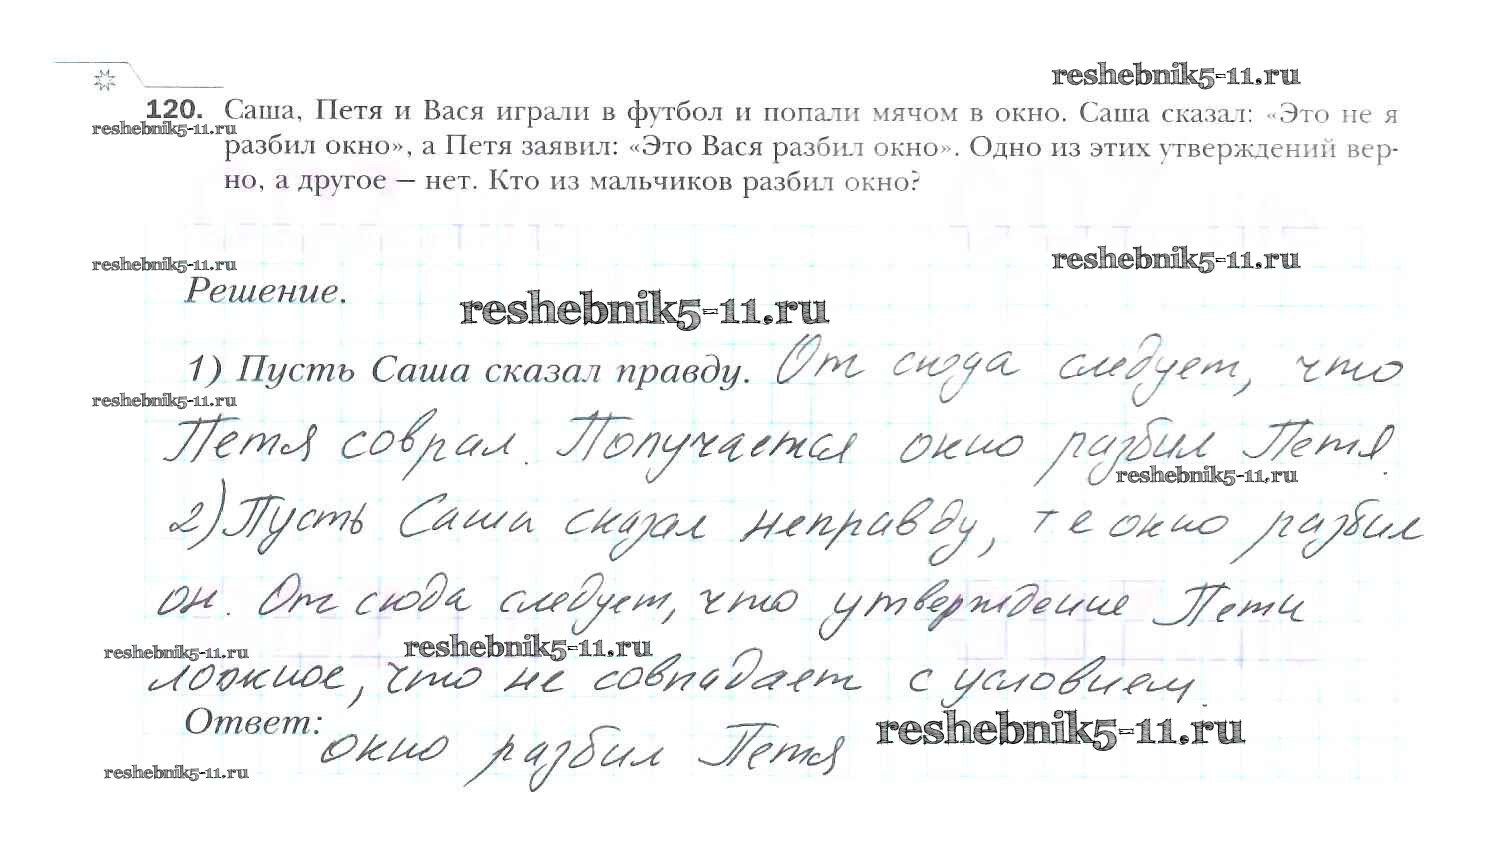 reshebnik5-11.ru
120. Саша, Петя и Вася играли в футбол и попали мячом в окно. Саша сказал: «Это не я
reshebnik5-11.ru
разбил окно», а Петя заявил: «Это Вася разбил окно». Одно из этих утверждений вер-
но, а другое – нет. Кто из мальчиков разбил окно?
reshebnik5-11.ru
reshebnik5-11.ru
Решение.
reshebnik5-11.ru
1) Пусть Саша сказал правду. От сюда следует, что
reshebnik5-11.ru
Петя соврал. Получается окно разбил Петя.
reshebnik5-11.ru
2) Пусть Саша сказал неправду, т е окно разбил
он. От сюда следует, что утверждение Пети
reshebnik5-11.ru
reshebnik5-11.ru
ложное, что не совпадает с условием.
Ответ: окно разбил Петя
reshebnik5-11.ru
reshebnik5-11.ru